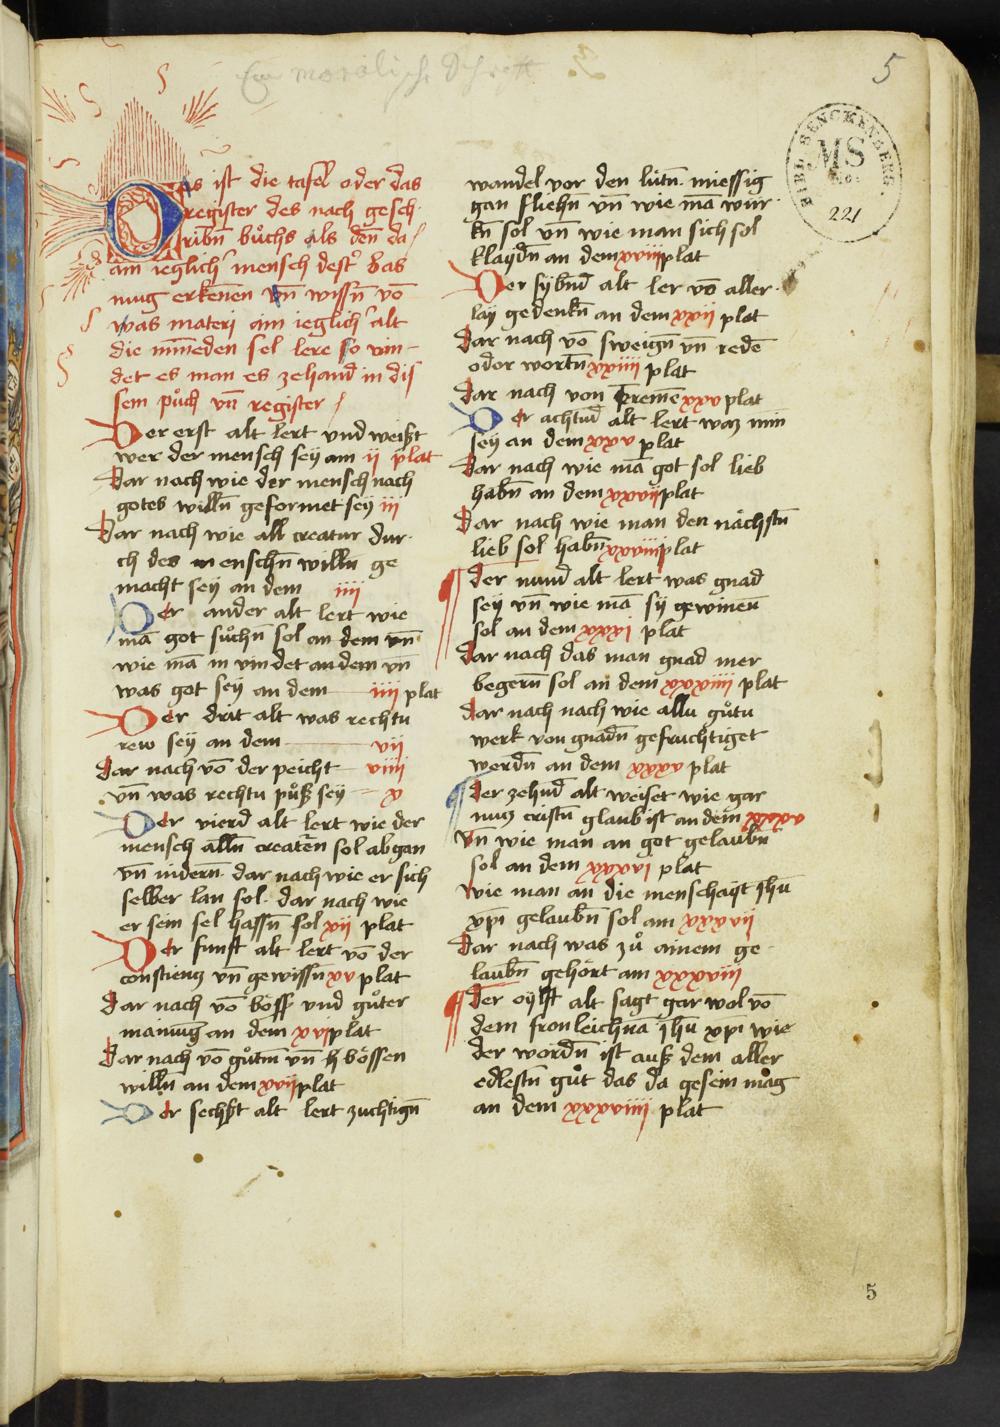 Ein moralische Schrift
5
BIBL. SENCKENBERG.
MS
No.
221
Das ist die tafel oder das
register des nach gesch
ribn̄ bůchs als den̄ da
am ieglich mensch dest bas
mug erkenen vn̄ wissn̄ vō
was materi ain ieglich alt
die mineden sel lere so vin
det es man es zehand in dis
sem půch vn̄ register
Der erst alt lert vnd weißt
wer der mensch sey am ij plat
Dar nach wie der mensch nach
gotes willn̄ geformet sey iii
Dar nach wie all creatur dur
ch des menschn̄ willn̄ ge
macht sey an dem iiii
Der ander alt lert wie
mā got sůchn̄ sol an dem vn̄
wie mā in vindet an dem vn̄
was got sey an dem iiii plat
Der drit alt was rechtu
rew sey an dem vii
Dar nach vō der peicht viiii
vn̄ was rechtu půß sey x
Der vierd alt lert wie der
mensch alln̄ creatēn sol abgan
vn̄ nidern̄ dar nach wie er sich
selber lan sol. dar nach wie
er sein sel hassn̄ sol xii plat
Der funft alt lert vō der
constientz vn̄ gewissn̄ xv plat
Dar nach vō böss vnd gůter
mainūg an dem xvi plat
Dar nach vō gůtm̄ vn̄ h bössen
willn̄ an dem xvii plat
Der sechst alt lert zuchtign̄
wandel vor den lütn̄ miessig
gan fliehn̄ vn̄ wie mā wur
kn̄ sol vn̄ wie man sich sol
klaydn̄ an dem xviiii plat
Der sybnd alt ler vō aller
lay gedenkn̄ an dem xxii plat
Dar nach vō sweign̄ vn̄ redē
odor wortn̄ xxiiii plat
Dar nach von tremē xxv plat
Der achtud alt lert waz min
sey an dem xxv plat
Dar nach wie mā got sol lieb
habn̄ an dem xxvii plat
Dar nach wie man den nächstn̄
lieb sol habn̄ xxviiii plat
Der nund alt lert was gnad
sey vn̄ wie mā sy gewinen̄
sol an dem xxxi plat
Dar nach das man gnad mer
begern̄ sol an dem xxxiiii plat
Dar nach nach wie allu gůtu
werk von gnadn̄ gefruchtiget
werdn̄ an dem xxxv plat
Der zehnd alt weiset wie gar
nutz cristn̄ glaub ist an dem
Vn̄ wie man an got gelaubn̄
sol an dem xxxvi plat
Wie man an die menschait ihū
xpi gelaubn̄ sol am xxxvii
Dar nach was zů ainem ge
laubn̄ gehört am xxxxviii
Der oylft alt sagt gar wol vō
dem fronleichnā ihū xpi wie
der wordn̄ ist auß dem aller
edlestn̄ gůt das da gesein mag
an dem xxxviiii plat
5